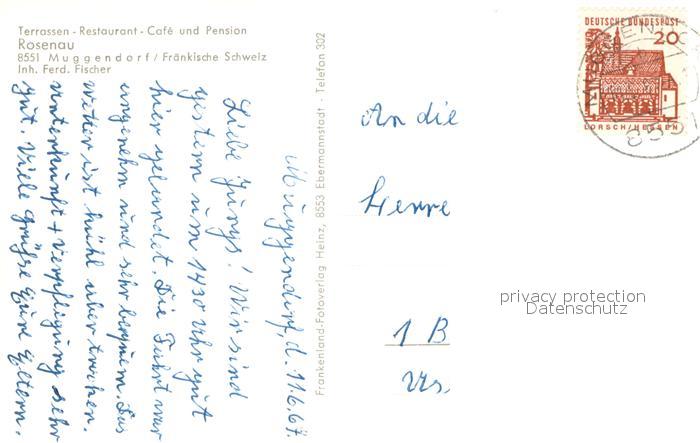 Terrassen-Restaurant-Café und Pension
Rosenau
8551 Muggendorf/Fränkische Schweiz
Inh. Ferd. Fischer
Muggendorf, d. 11.6.67.
Liebe Jungs! Wir sind
gestern um 1430 Uhr gut
hier gelandet. Die Fahrt war
angenehm und sehr bequem. Das
Wetter ist kühl aber trocken.
Unterkunft + Verpflegung sehr
gut. Viele Grüße Eure Eltern.
Frankenland-Fotoverlag Heinz, 8553 Ebermannstadt · Telefon 302
DEUTSCHE BUNDESPOST
20
LORSCH/HESSEN
An die
Herre
1 B
privacy protection
Datenschutz